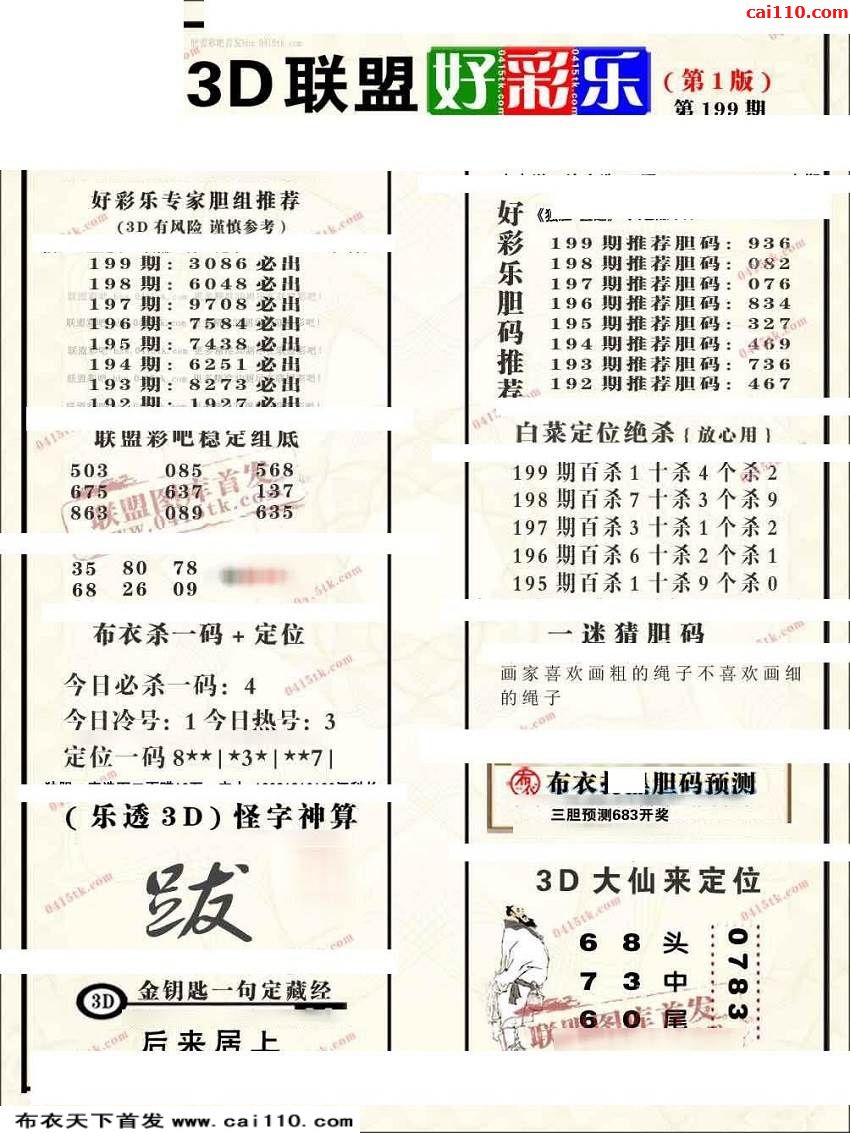 cai110.com
3D联盟好彩乐
0415tk.com
0415tk.com
0415tk.com
(第1版)
第199期
好彩乐专家胆组推荐
(3D有风险 谨慎参考)
199期：3086必出
198期：6048必出
197期：9708必出
196期：7584必出
195期：7438必出
194期：6251必出
193期：8273必出
192期：1927必出
联盟彩吧稳定组底
503 085 568
675 637 137
863 089 635
联盟图库首发
www.0415tk.com
35 80 78
68 26 09
布衣杀一码+定位
今日必杀一码：4
今日冷号：1 今日热号：3
定位一码8**|*3*|**7|
(乐透3D)怪字神算
跋
3D 金钥匙一句定藏经
后来居上
好彩乐胆码推荐
199期推荐胆码：936
198期推荐胆码：082
197期推荐胆码：076
196期推荐胆码：834
195期推荐胆码：327
194期推荐胆码：469
193期推荐胆码：736
192期推荐胆码：467
白菜定位绝杀{放心用}
199期百杀1十杀4个杀2
198期百杀7十杀3个杀9
197期百杀3十杀1个杀2
196期百杀6十杀2个杀1
195期百杀1十杀9个杀0
一迷猜胆码
画家喜欢画粗的绳子不喜欢画细
的绳子
布衣 胆码预测
三胆预测683开奖
3D大仙来定位
6 8 头
7 3 中
6 0 尾
0783
联盟图库首发
布衣天下首发 www.cai110.com